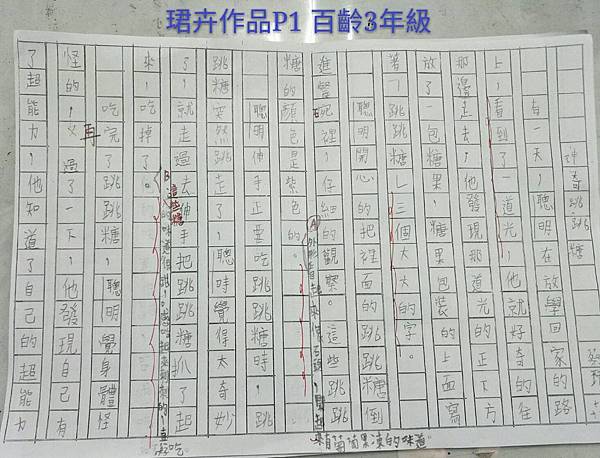 珺卉作品P1 百齡3年級
神奇跳跳糖
有一天，聰明在放學回家的路
上，看到了一道光，他就好奇的往
那邊走去，他發現那道光的正下方
放了一包糖果，糖果包裝的上面寫
著「跳跳糖」三個大大的字。
聰明開心的把裡面的跳跳糖倒
進碗裡，仔細的觀察。這些跳跳
糖的顏色是紫色的。
Ⓐ外形看起來像石頭，聞起來有葡萄果凍的味道
聰明伸手正要吃跳跳糖時，跳
跳糖突然跳走了，聰時覺得太奇妙
了，就走過去伸手把跳跳糖抓了起
來，吃掉了。
B 這些糖的味道很 起來刺刺的，真好吃
吃完了跳跳糖，聰明覺身體怪
怪的，又再過了一下，他發現自己有
了超能力，他知道了自己的超能力